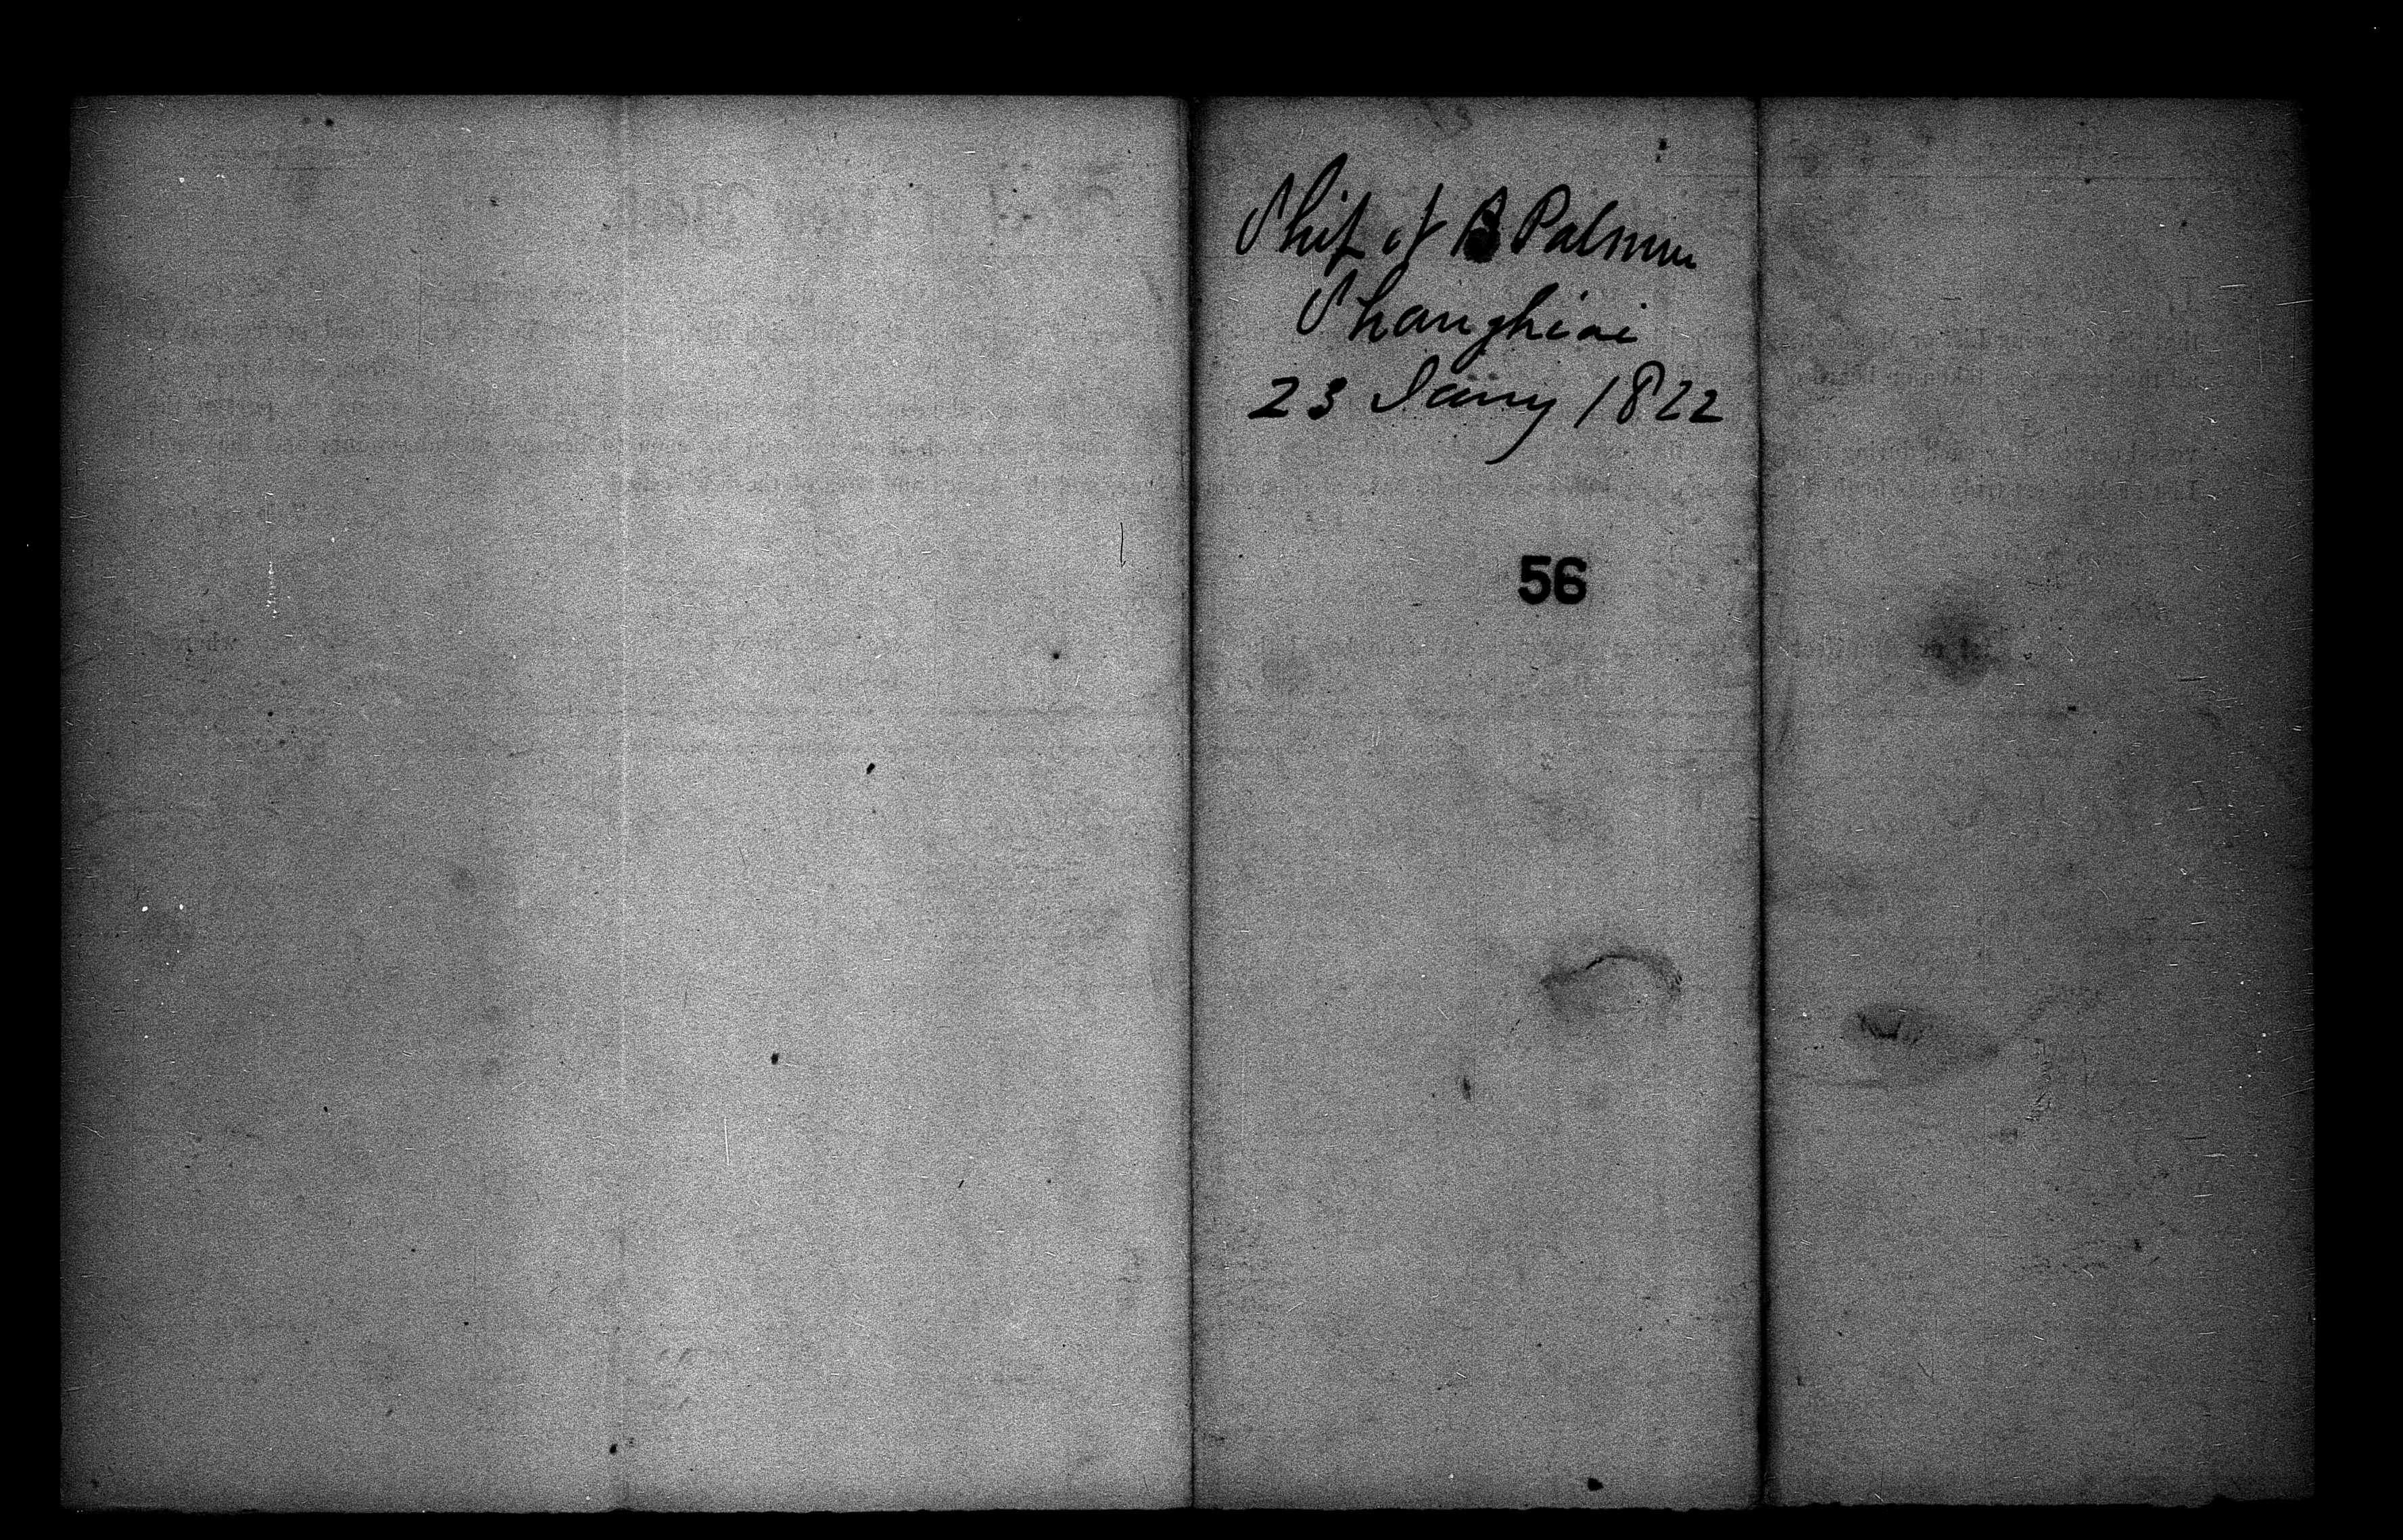 Ship of B Palmer
Shanghiai
23 Jany 1822
56